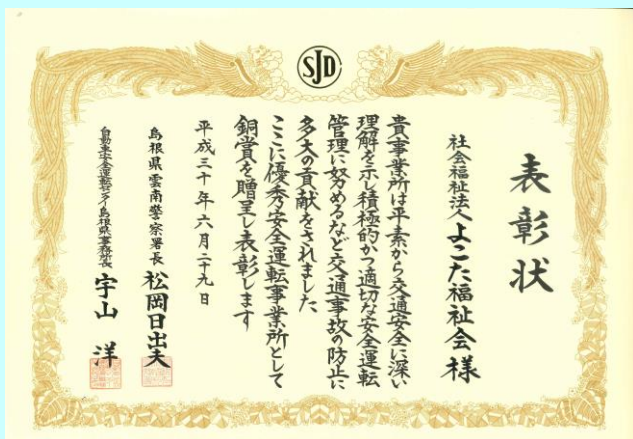 SJD
表彰状
社会福祉法人よこた福祉会様
貴事業所は平素から交通安全に深い
理解を示し積極的かつ適切な安全運転
管理に努めるなど交通事故の防止に
多大の貢献をされました
ここに優秀安全運転事業所として
銅賞を贈呈し表彰します
平成三十年六月二十九日
島根県雲南警察署長 松岡日出夫
自動車安全運転センター島根県事務所長 宇山 洋